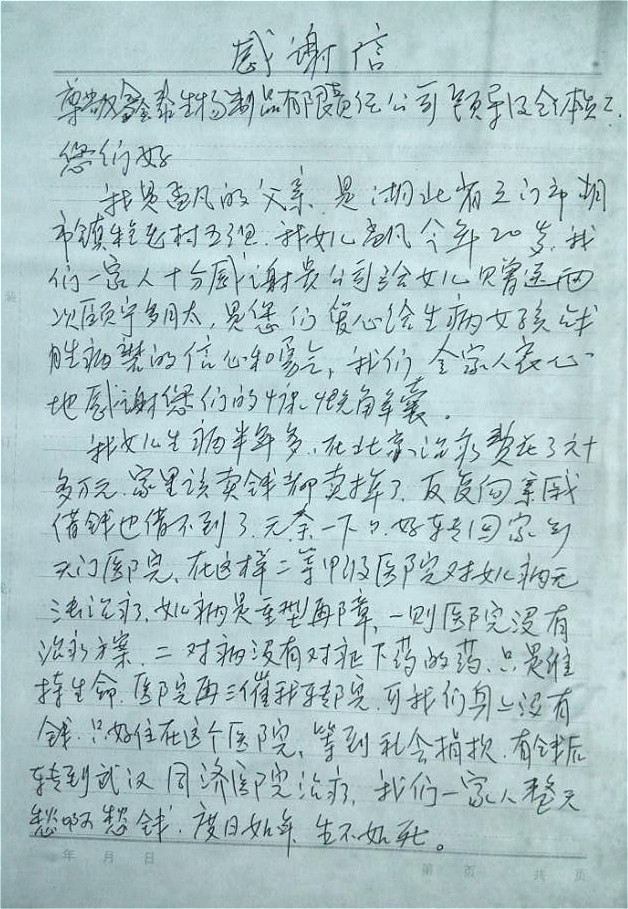 感谢信
尊敬鑫泰生物制品有限责任公司领导及全体员工.
您们好
我是孟凡的父亲.是湖北省天门市胡
市镇 村五组.我女儿孟凡今年20岁.我
们一家人十分感谢贵公司给女儿见曾送两
次 多肽,是您们爱心给生病女孩战
胜病 的信心和勇气,我们全家人衷心
地感谢您们的慷慨解囊。
我女儿生病半年多.在北京治疗费花了六十
多万元.家里该卖钱都卖掉了.反复向亲戚
借钱也借不到了.无奈一下 好转回家到
天门医院,在这样二等甲级医院对女儿病无
法治疗.女儿病是重型再障,一则医院没有
治疗方案.二对病没有对症下药的药.只是维
持生命.医院再三催我转院.可我们身上没有
钱.只好住在这个医院,等到社会捐款.有钱后
转到武汉同济医院治疗,我们一家人整天
愁啊愁钱.度日如年,生不如死。
年 月 日 第 页 共 页